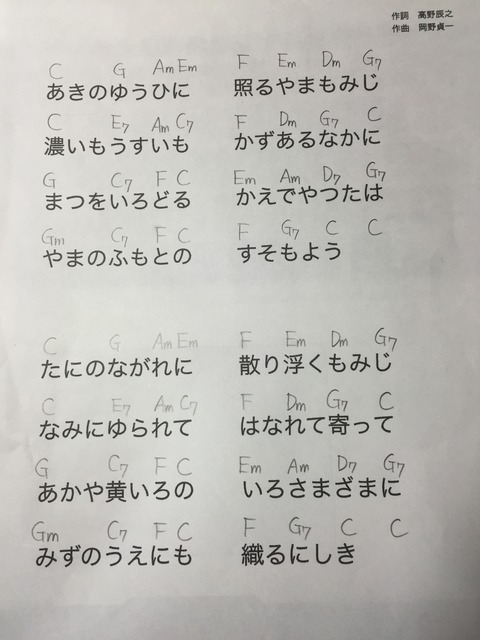 作詞 高野辰之
作曲 岡野貞一
C G Am Em F Em Dm G7
あきのゆうひに 照るやまもみじ
C E7 Am C7 F Dm G7 C
濃いもうすいも かずあるなかに
G C7 F C Em Am D7 G7
まつをいろどる かえでやつたは
Gm C7 F C F G7 C C
やまのふもとの すそもよう
C G Am Em F Em Dm G7
たにのながれに 散り浮くもみじ
C E7 Am C7 F Dm G7 C
なみにゆられて はなれて寄って
G C7 F C Em Am D7 G7
あかや黄いろの いろさまざまに
Gm C7 F C F G7 C C
みずのうえにも 織るにしき